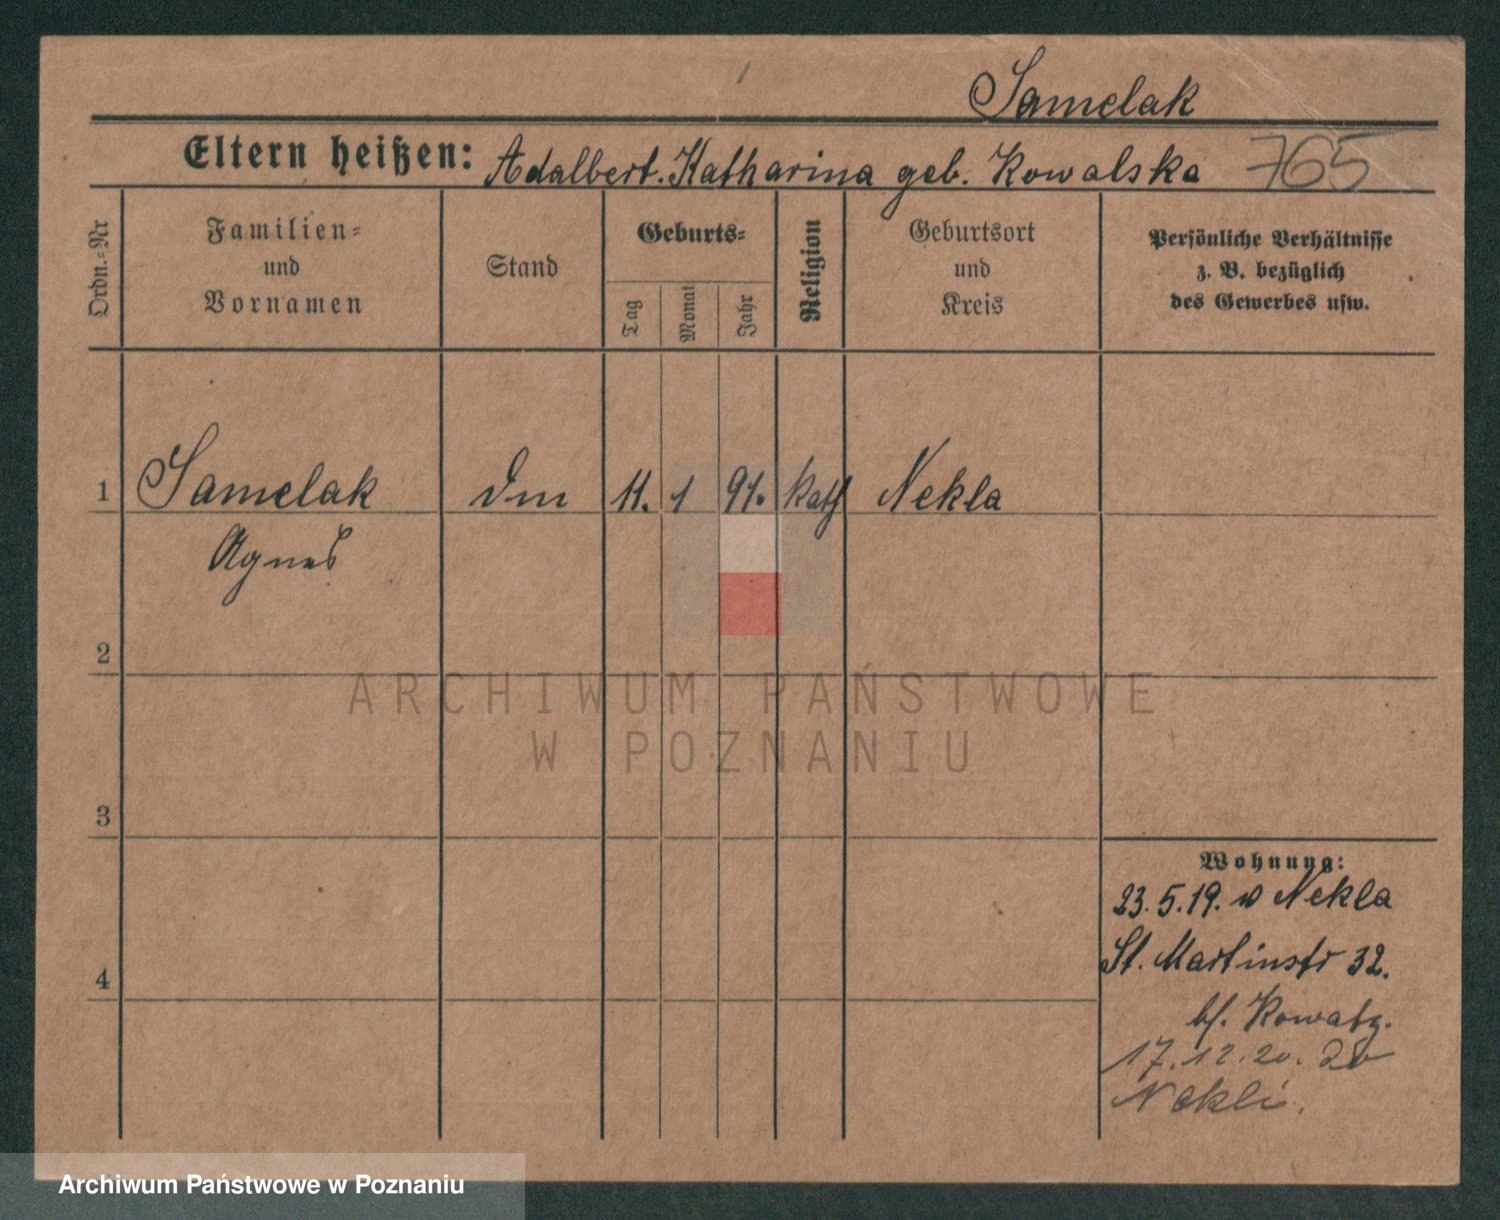 Samelak
Eltern heißen: Adalbert. Katharina geb. Kowalska 765
Ordn.-Nr
Familien-
und
Vornamen
Stand
Geburts-
Tag
Monat
Jahr
Religion
Geburtsort
und
Kreis
Persönliche Verhältnisse
z. B. bezüglich
des Gewerbes usw.
1 Samelak Dm 11. 1 91. kath Nekla
Agnes
2
3
4
Wohnung:
23.5.19. v Nekla
St. Martinstr 32.
bf.
17.12.20. do
Nekli.
ARCHIWUM PAŃSTWOWE
W POZNANIU
Archiwum Państwowe w Poznaniu